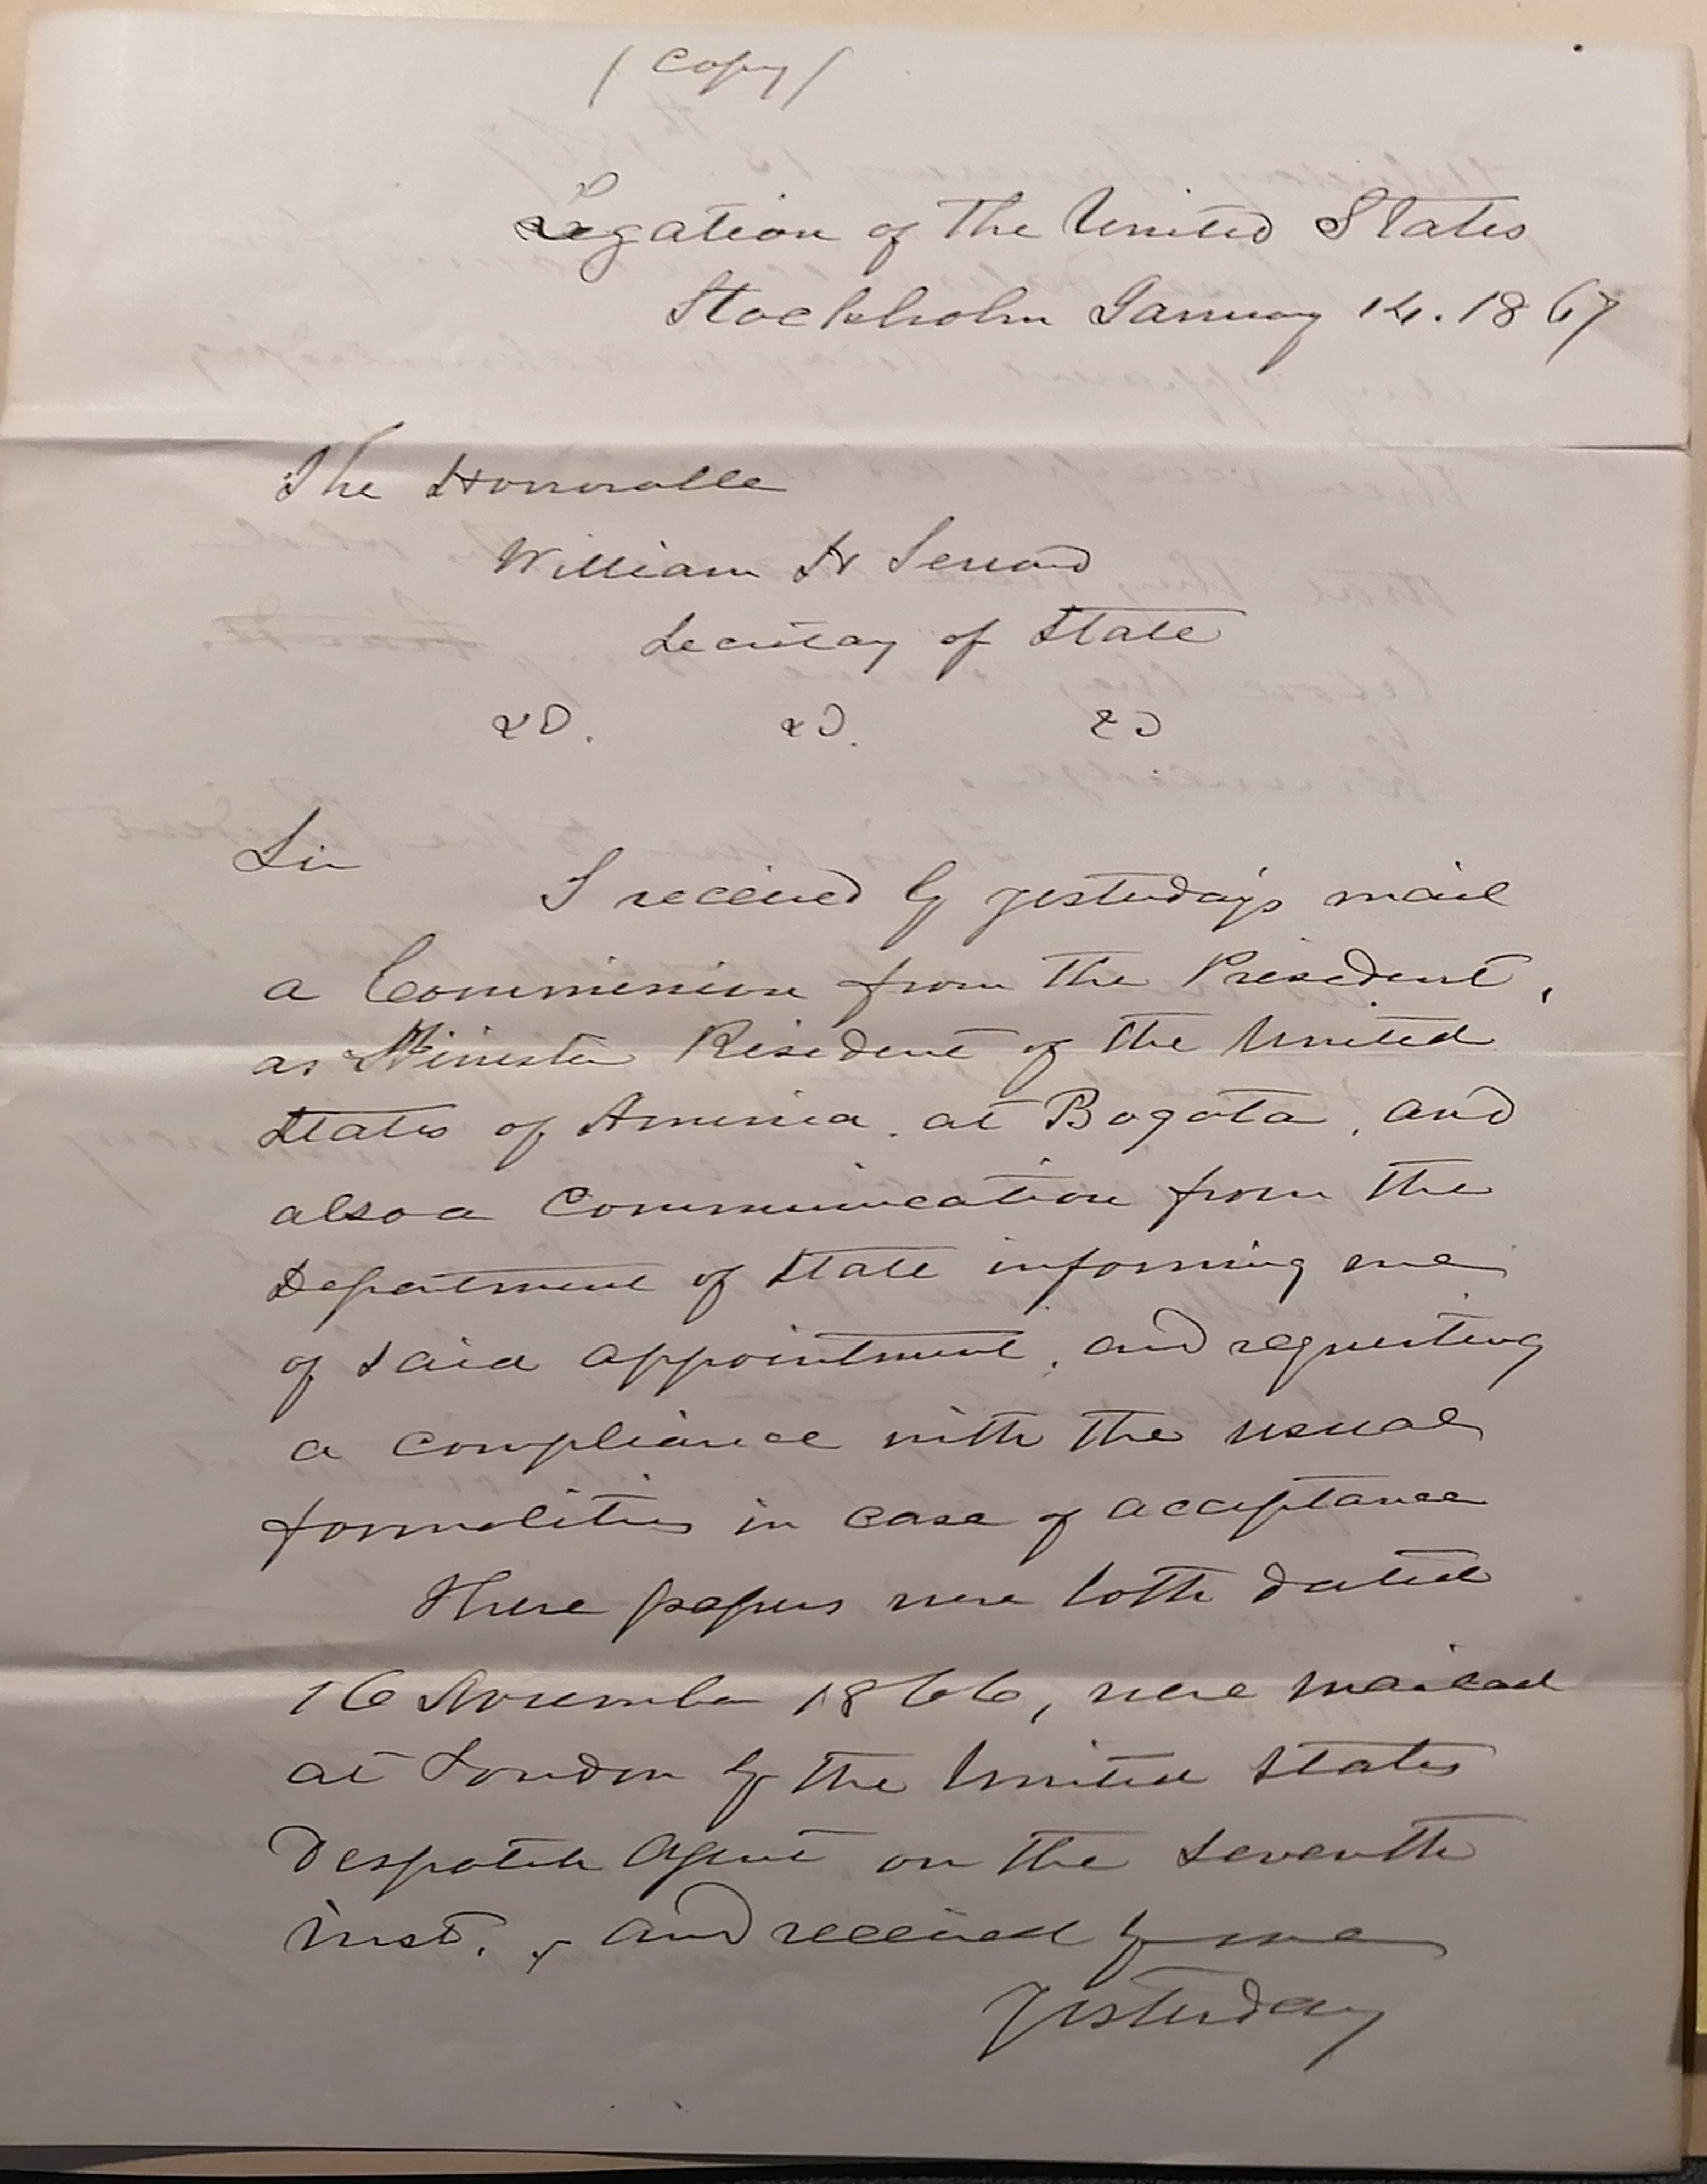 / Copy /
Legation of The United States
Stockholm January 14. 1867
The Honorable
William H Seward
Secretary of State
&c. &c. &c
Sir
I received by yesterday's mail
a Commission from the President,
as Minister Resident of the United
States of America. at Bogota, and
also a Communication from the
Department of State informing me
of said appointment, and requesting
a compliance with the usual
formalities in case of acceptance
These papers were both dated
16 November 1866, were mailed
at London by the United States
Despatch Agent on the Seventh
inst., and received by me
Yesterday